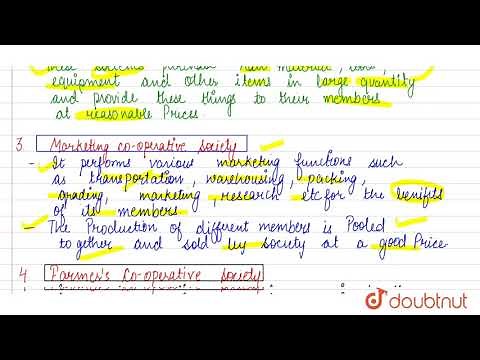 these societies purchase raw material, tools,
equipment and other items in large quantity
and provide these things to their members
at reasonable Prices.
3 Marketing co-operative society
- It performs various marketing functions such
as transportation, warehousing, packing,
grading, marketing, research etc for the benifits
of its members
- The Production of different members is Pooled
together and sold by society at a good Price
4 Farmer's Co-operative Society
doubtnut